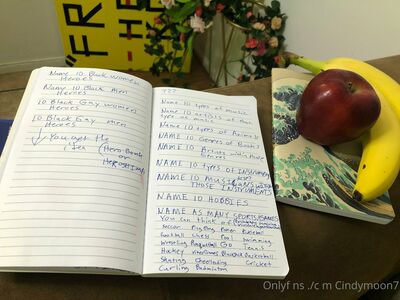 Name 10 Black women
Heroes
Name 10 Black Men
Heroes
10 Black Gay women
Heroes
10 Black Gay men
Heroes
You get the
(Hero-Bomb
or
???
Name 10 types of music
Name 10 artists of
Name 10 types of Animals
Name 10 Genres of Books
Name 10 Artists with those
Genres
NAME 10 TYPES of INSTRUMENTS
NAME 10 MUSICIANS WITH
THOSE INSTRUMENTS
NAME 10 HOBBIES
NAME AS MANY SPORTS/GAMES
You can think of
Soccer Ping Pong Poker Baseball
Football Chess Pool Swimming
Wrestling Racquetball Go Tennis
Hockey Basketball Cricket
Skating
Curling Badminton
"FR
HER
Onlyf ns ./c m Cindymoon7